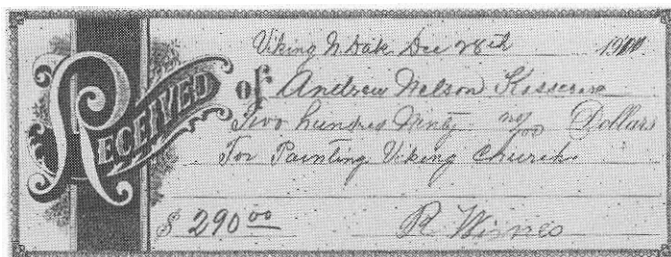 Viking N. Dak. Dec 28th 1900
RECEIVED of Andrew Nelson
Two hundred Ninty no/100 Dollars
For Painting Viking Church
$ 290 00 R Wisnes